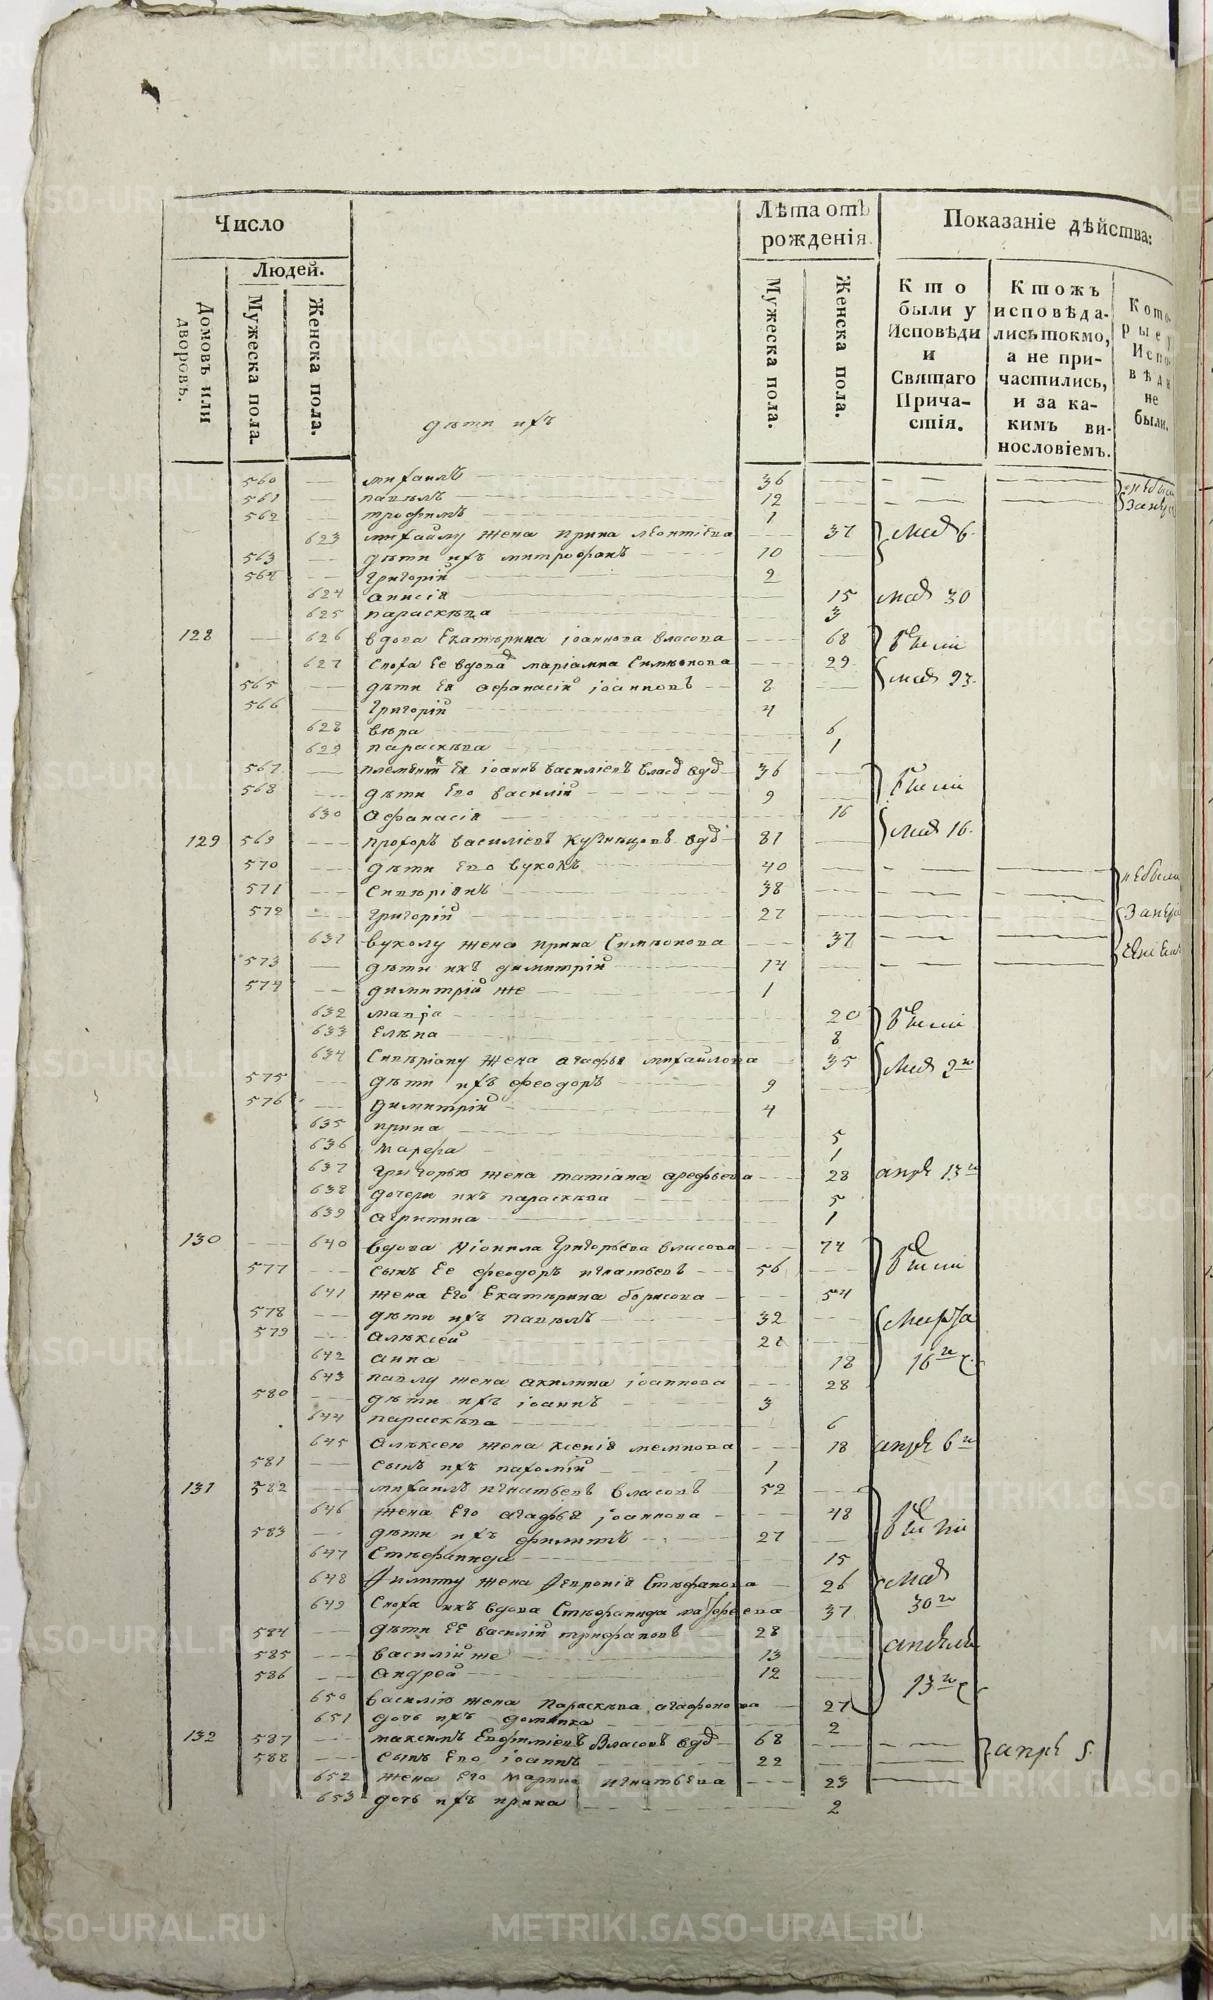 METRIKI.GASO-URAL.RU
Число
Лѣта отъ рожденія.
Показаніе дѣйства:
Людей.
Домовъ или дворовъ.
Мужеска пола.
Женска пола.
дѣти ихъ
Мужеска пола.
Женска пола.
Кто были у Исповѣди и Святаго Причастія.
Ктожъ исповѣдались токмо, а не причастились, и за какимъ винословіемъ.
Которые у Исповѣди не были.
560 михаилъ 36 не были
561 павелъ 12
562 трофимъ 1
623 михайлу жена ирина леонтіева 37 мая 6
563 дѣти ихъ митрофанъ 10
564 григорій 2
624 анисія 15 мая 30
625 параскѣва 3
128 626 вдова Екатѣрина іоаннова власова 68
627 сноха Ее вдова маріамна Симѣонова 29 мая 23
565 дѣти Ея афанасій іоанновъ 8
566 григорій 4
628 вѣра 6
629 параскѣва 1
567 племянникъ Ея іоаннъ василіевъ власовъ вдъ 36
568 дѣти Его василій 9
630 афанасія 16
129 569 прохоръ василіевъ кузнецовъ вдъ 81 мая 16
570 дѣти Его вуколъ 40 не были
571 Сивѣріянъ 38
572 григорій 27
631 вуколу жена ирина Симѣонова 37
573 дѣти ихъ димитрій 14
574 димитрій же 1
632 марія 20
633 Елѣна 8
634 Сивѣріану жена агафья михайлова 35 мая 2го
575 дѣти ихъ феодоръ 9
576 димитрій 4
635 ирина 5
636 марфа 1
637 григорью жена татіана арефьева 28 апрѣ 13го
638 дочери ихъ параскѣва 5
639 агрипина 1
130 640 вдова Неонила григорьева власова 74
577 сынъ Ее феодоръ игнатьевъ 56
641 жена Его Екатѣрина борисова 54
578 дѣти ихъ павелъ 32 марта
579 алѣксей 21
642 анна 18 16го
643 павлу жена акилина іоаннова 28
580 дѣти ихъ іоаннъ 3
644 параскѣва 6
645 алѣксею жена ксенія мемнова 18 апрѣ 6го
581 сынъ ихъ пахомій 1
131 582 михаилъ игнатьевъ власовъ 52
646 жена Его агафья іоаннова 48
583 дѣти ихъ филиппъ 27
647 Стѣфанида 15
648 Филиппу жена Феврония Стѣфанова 26 мая
649 Сноха ихъ вдова Стѣфанида 37 30го
584 дѣти ЕЕ василій трифановъ 28 апрѣля
585 василій же 13
586 андрей 12 13го
650 василію жена параскѣва агафонова 27
651 дочь ихъ домника 2
132 587 максимъ Евфиміевъ Власовъ вдъ 68 апрѣ 5
588 сынъ Его іоаннъ 22
652 жена Его марина игнатьева 23
653 дочь ихъ ирина 2